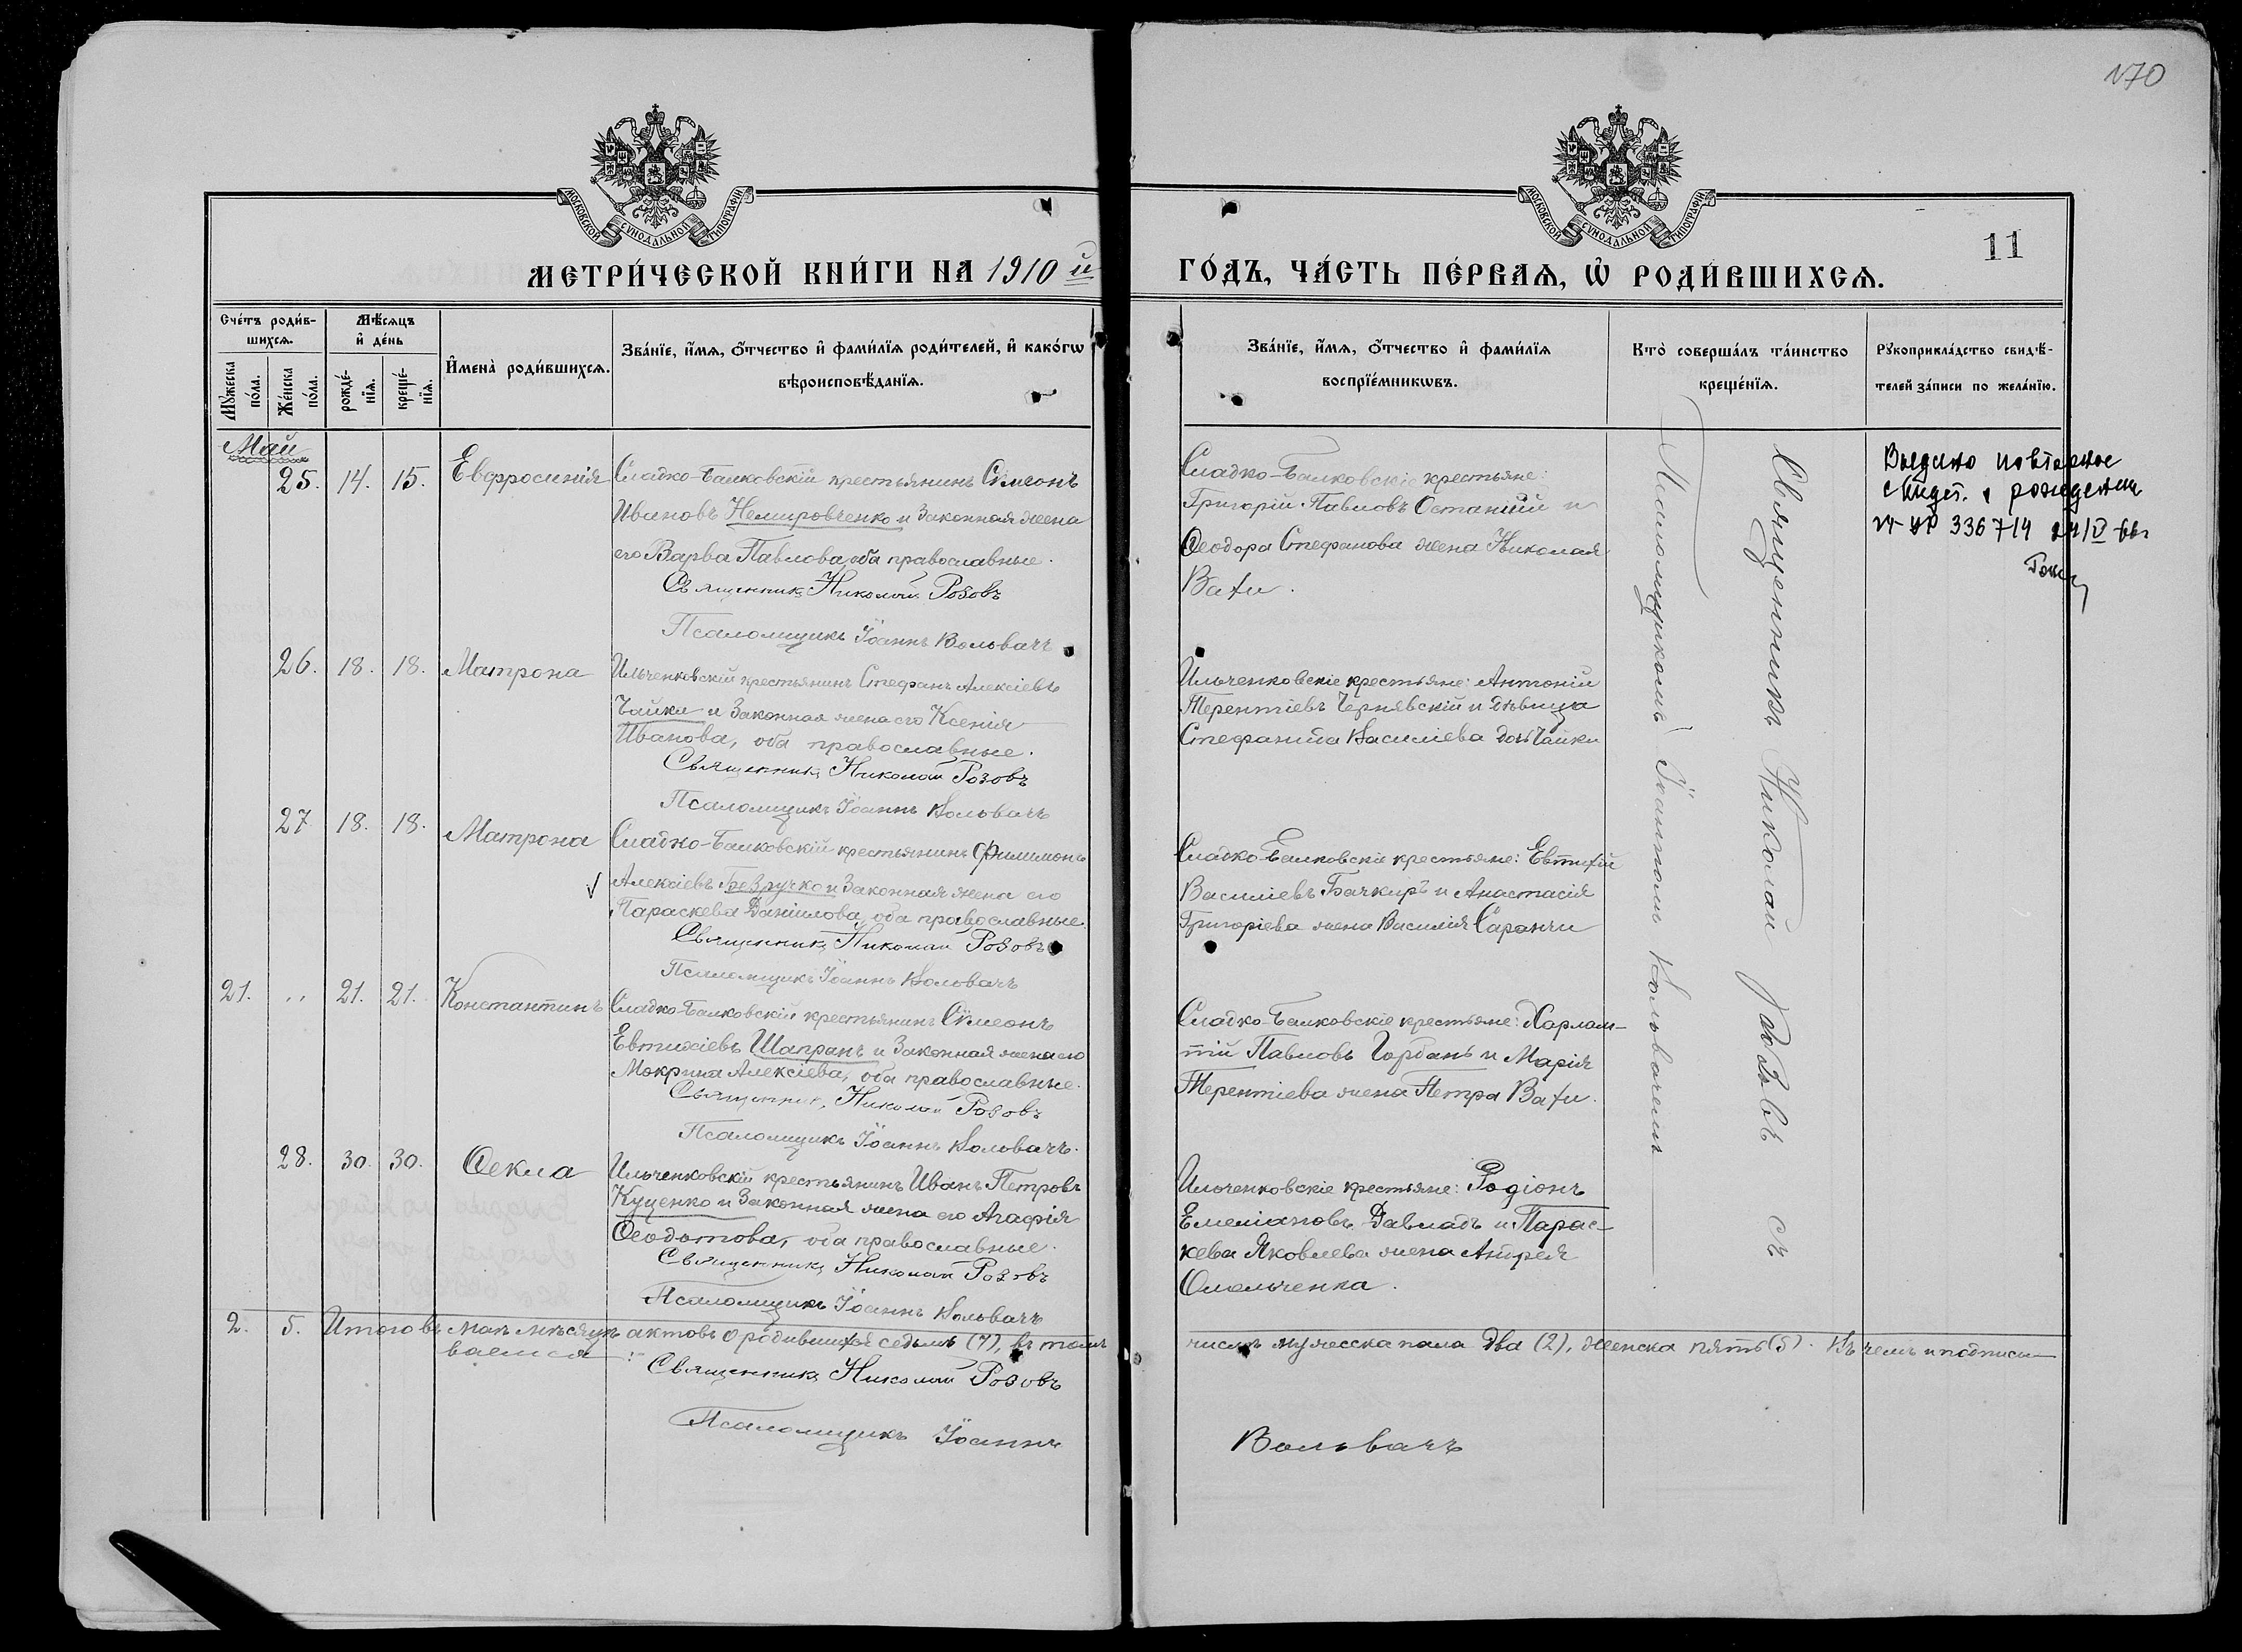 170
МОСКОВСКОЙ СѴНОДАЛЬНОЙ ТИПОГРАФІИ
МОСКОВСКОЙ СѴНОДАЛЬНОЙ ТИПОГРАФІИ
11
МЕТРИ́ЧЕСКОЙ КНИ́ГИ НА 1910й
ГО́ДЪ, ЧА́СТЬ ПЕ́РВАѦ, Ѡ҆ РОДИ́ВШИХСѦ.
Сче́тъ роди́в-
шихсѧ.
Мꙋ́жеска по́ла.
Же́нска по́ла.
Мѣ́сѧцъ и҆ де́нь
рожде́-нїѧ.
креще́-нїѧ.
И҆мена̀ роди́вшихсѧ.
Зва́нїе, и҆́мѧ, ѻ҆́тчество и҆ фами́лїѧ роди́телей, и҆ како́гѡ
вѣроисповѣ́данїѧ.
Зва́нїе, и҆́мѧ, ѻ҆́тчество и҆ фами́лїѧ
воспрїе́мникѡвъ.
Кто̀ соверша́лъ та́инство
креще́нїѧ.
Рꙋкоприкла́дство свидѣ́-
телей за́писи по жела́нїю.
Май
25. 14. 15. Евфросинія
Сладко-Балковскій крестьянинъ Сѵмеонъ
Ивановъ Немировченко и законная жена
его Варва Павлова, оба православные.
Священникъ Николай Розовъ
Псаломщикъ Іоаннъ Вольвачъ
Сладко-Балковскіе крестьяне:
Григорій Павловъ Останній и
Ѳеодора Стефанова жена Николая
Вахи.
Выдано повторное
свидет. о рождении
336714
26. 18. 18. Матрона
Ильченковскій крестьянинъ Стефанъ Алексіевъ
Чайка и законная жена его Ксенія
Иванова, оба православные.
Священникъ Николай Розовъ
Псаломщикъ Іоаннъ Вольвачъ
Ильченковскіе крестьяне: Антоній
Терентіевъ Чернявскій и дѣвица
Стефанида Василіева дочь Чайки
27 18. 18. Матрона
Сладко-Балковскій крестьянинъ Филимонъ
Алексіевъ Безручко и законная жена его
Параскева Даніилова, оба православные.
Священникъ Николай Розовъ
Псаломщикъ Іоаннъ Вольвачъ
Сладко-Балковскіе крестьяне: Евтихій
Василіевъ Бачкиръ и Анастасія
Григоріева жена Василія Саранчи
21. " 21. 21. Константинъ
Сладко-Балковскій крестьянинъ Сѵмеонъ
Евтихіевъ Шапранъ и законная жена его
Мокрина Алексіева, оба православные.
Священникъ Николай Розовъ
Псаломщикъ Іоаннъ Вольвачъ.
Сладко-Балковскіе крестьяне: Харлам-
пій Павловъ Горбань и Марія
Терентіева жена Петра Вахи.
28. 30. 30. Ѳекла
Ильченковскій крестьянинъ Иванъ Петровъ
Куценко и законная жена его Агафія
Ѳеодотова, оба православные.
Священникъ Николай Розовъ
Псаломщикъ Іоаннъ Вольвачъ
Ильченковскіе крестьяне: Родіонъ
Емеліановъ Давладъ и Парас-
кева Яковлева жена Андрея
Омельченка.
Священникъ Николай Розовъ съ
Псаломщикомъ Іоанномъ Вольвачемъ
2. 5. Итого въ маѣ мѣсяцѣ актовъ о родившихся седьмь (7), въ томъ числѣ мужеска пола два (2), женска пять (5). Въ чемъ и подписы-
ваемся:
Священникъ Николай Розовъ
Псаломщикъ Іоаннъ Вольвачъ